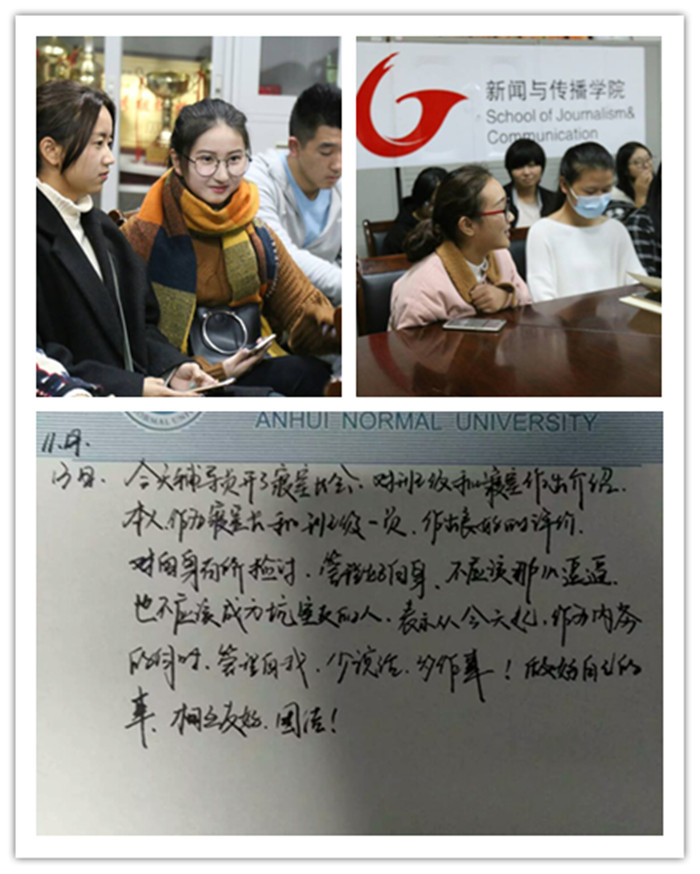 新闻与传播学院
School of Journalism&
Communication
NORMAL UNI
ANHUI NORMAL UNIVERSITY
11.月.
13日. 今天辅导员开了寝室长会、对班级和寝室作出介绍.
本人作为寝室长和班级一员、作出良好的评价.
对自身有所检讨、管理好自身、不应该那么逗逗.
也不应该成为坑室友的人、表示从今天起、作为内务
的同时、管理自我、少说话、多作事！做好自己的
事、相互友好、团结！